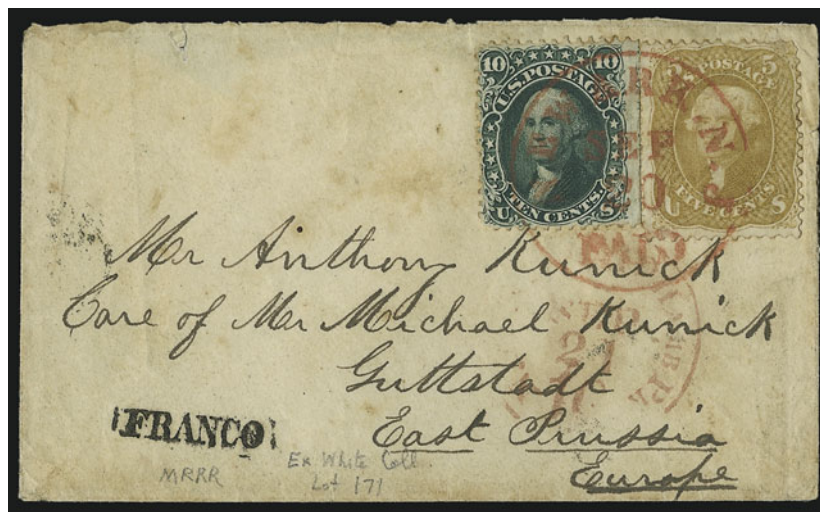 10 10
U.S. POSTAGE
TEN CENTS.
U S
5 5
U.S. POSTAGE
FIVE CENTS
U S
SEP
20
PAID
Mr Anthony Kunick
Care of Mr Michael Kunick
Guttstadt
East Prussia
Europe
FRANCO
MRRR
Ex White Coll
Lot 171